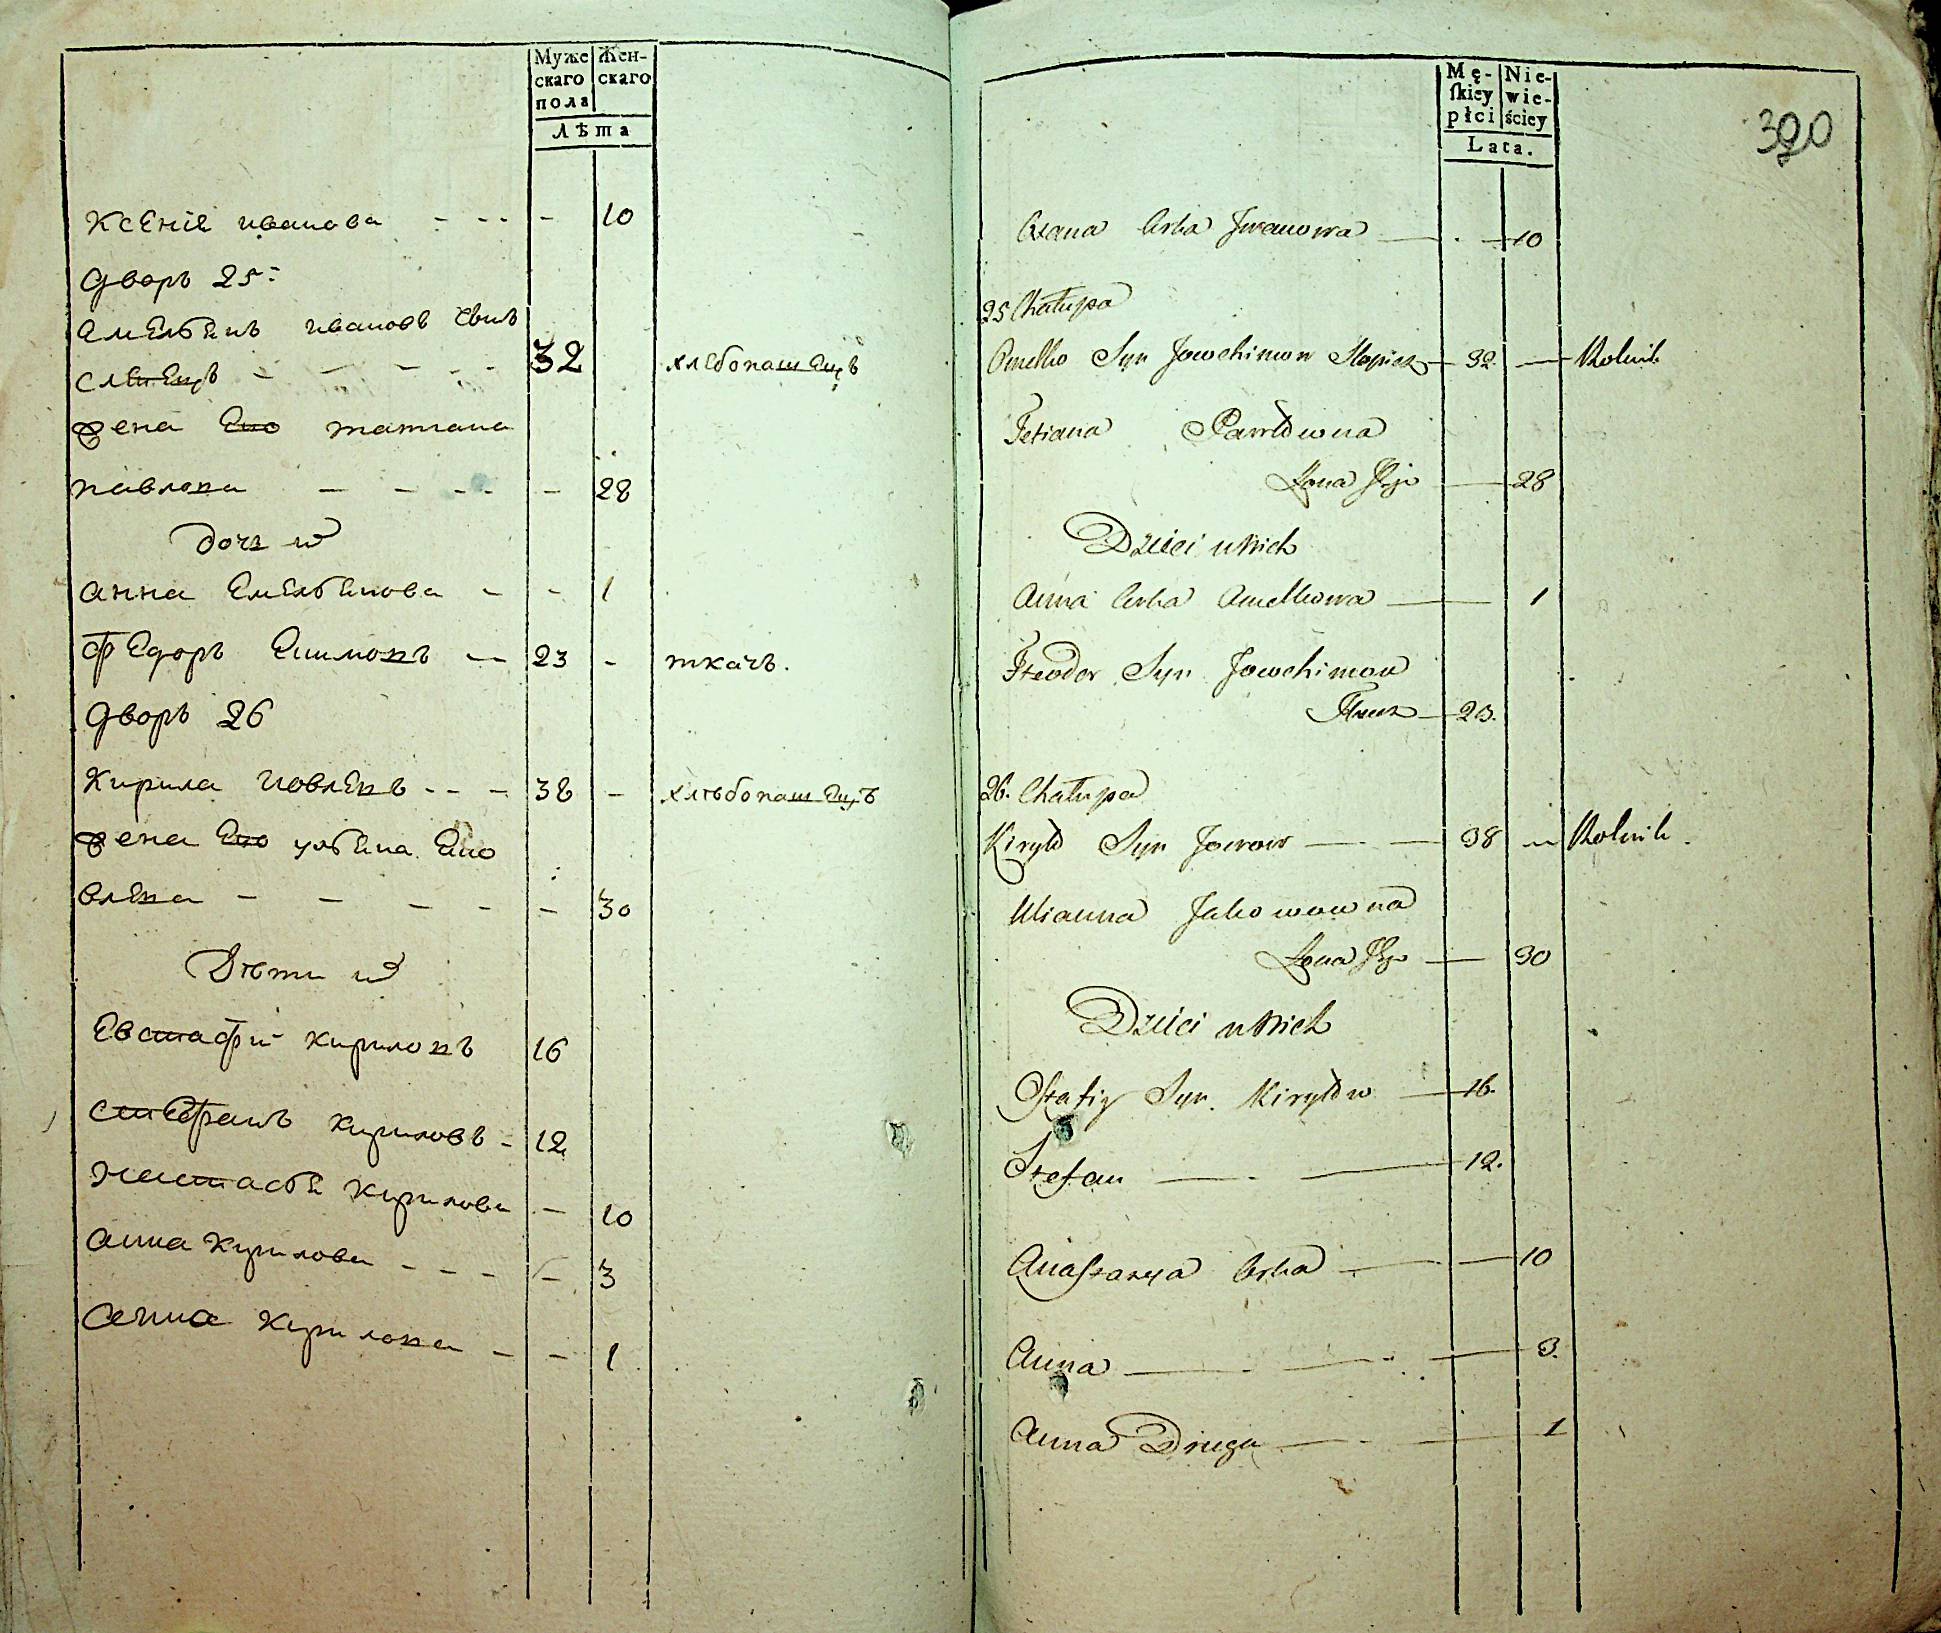 Муже
скаго
пола
Жен-
скаго
Лѣта
Ксения иванова - - - - 10
Дворъ 25:
Амельянъ ивановъ
32 хлебопашецъ
жена Его татиана
павлова - - - - - 28
дочь их
анна Емельянова - - 1
Федоръ — 23 - ткачъ.
Дворъ 26
Кирила - - - 38 - хлѣбопашецъ
жена Его ульяна
- - - - - 30
Дѣти их
Евстафий кириловъ 16
стефанъ кириловъ - 12
настасья кирилова - 10
анна кирилова - - - - 3
анна кирилова - - 1
Mę-
skiey
płci
Nie-
wie-
ściey
Lata.
320
Corka Iwanowa — 10
25 Chałupa
Omelko Syn Jowchimow — 32 — Rolnik
Tetiana Pawłowna
Żona Jego — 28
Dzieci u Nich
Anna Corka Amelkowa — 1
Fteodor Syn Jowchimow
Tkacz — 23.
26. Chałupa
Kiryło Syn Jowow — 38 — Rolnik.
Ulianna Jakowowna
Żona Jego — 30
Dzieci u Nich
Ostafiy Syn Kiryłow — 16.
Stefan — 12.
Anastazya Corka — 10
Anna — 3.
Anna Druga — 1